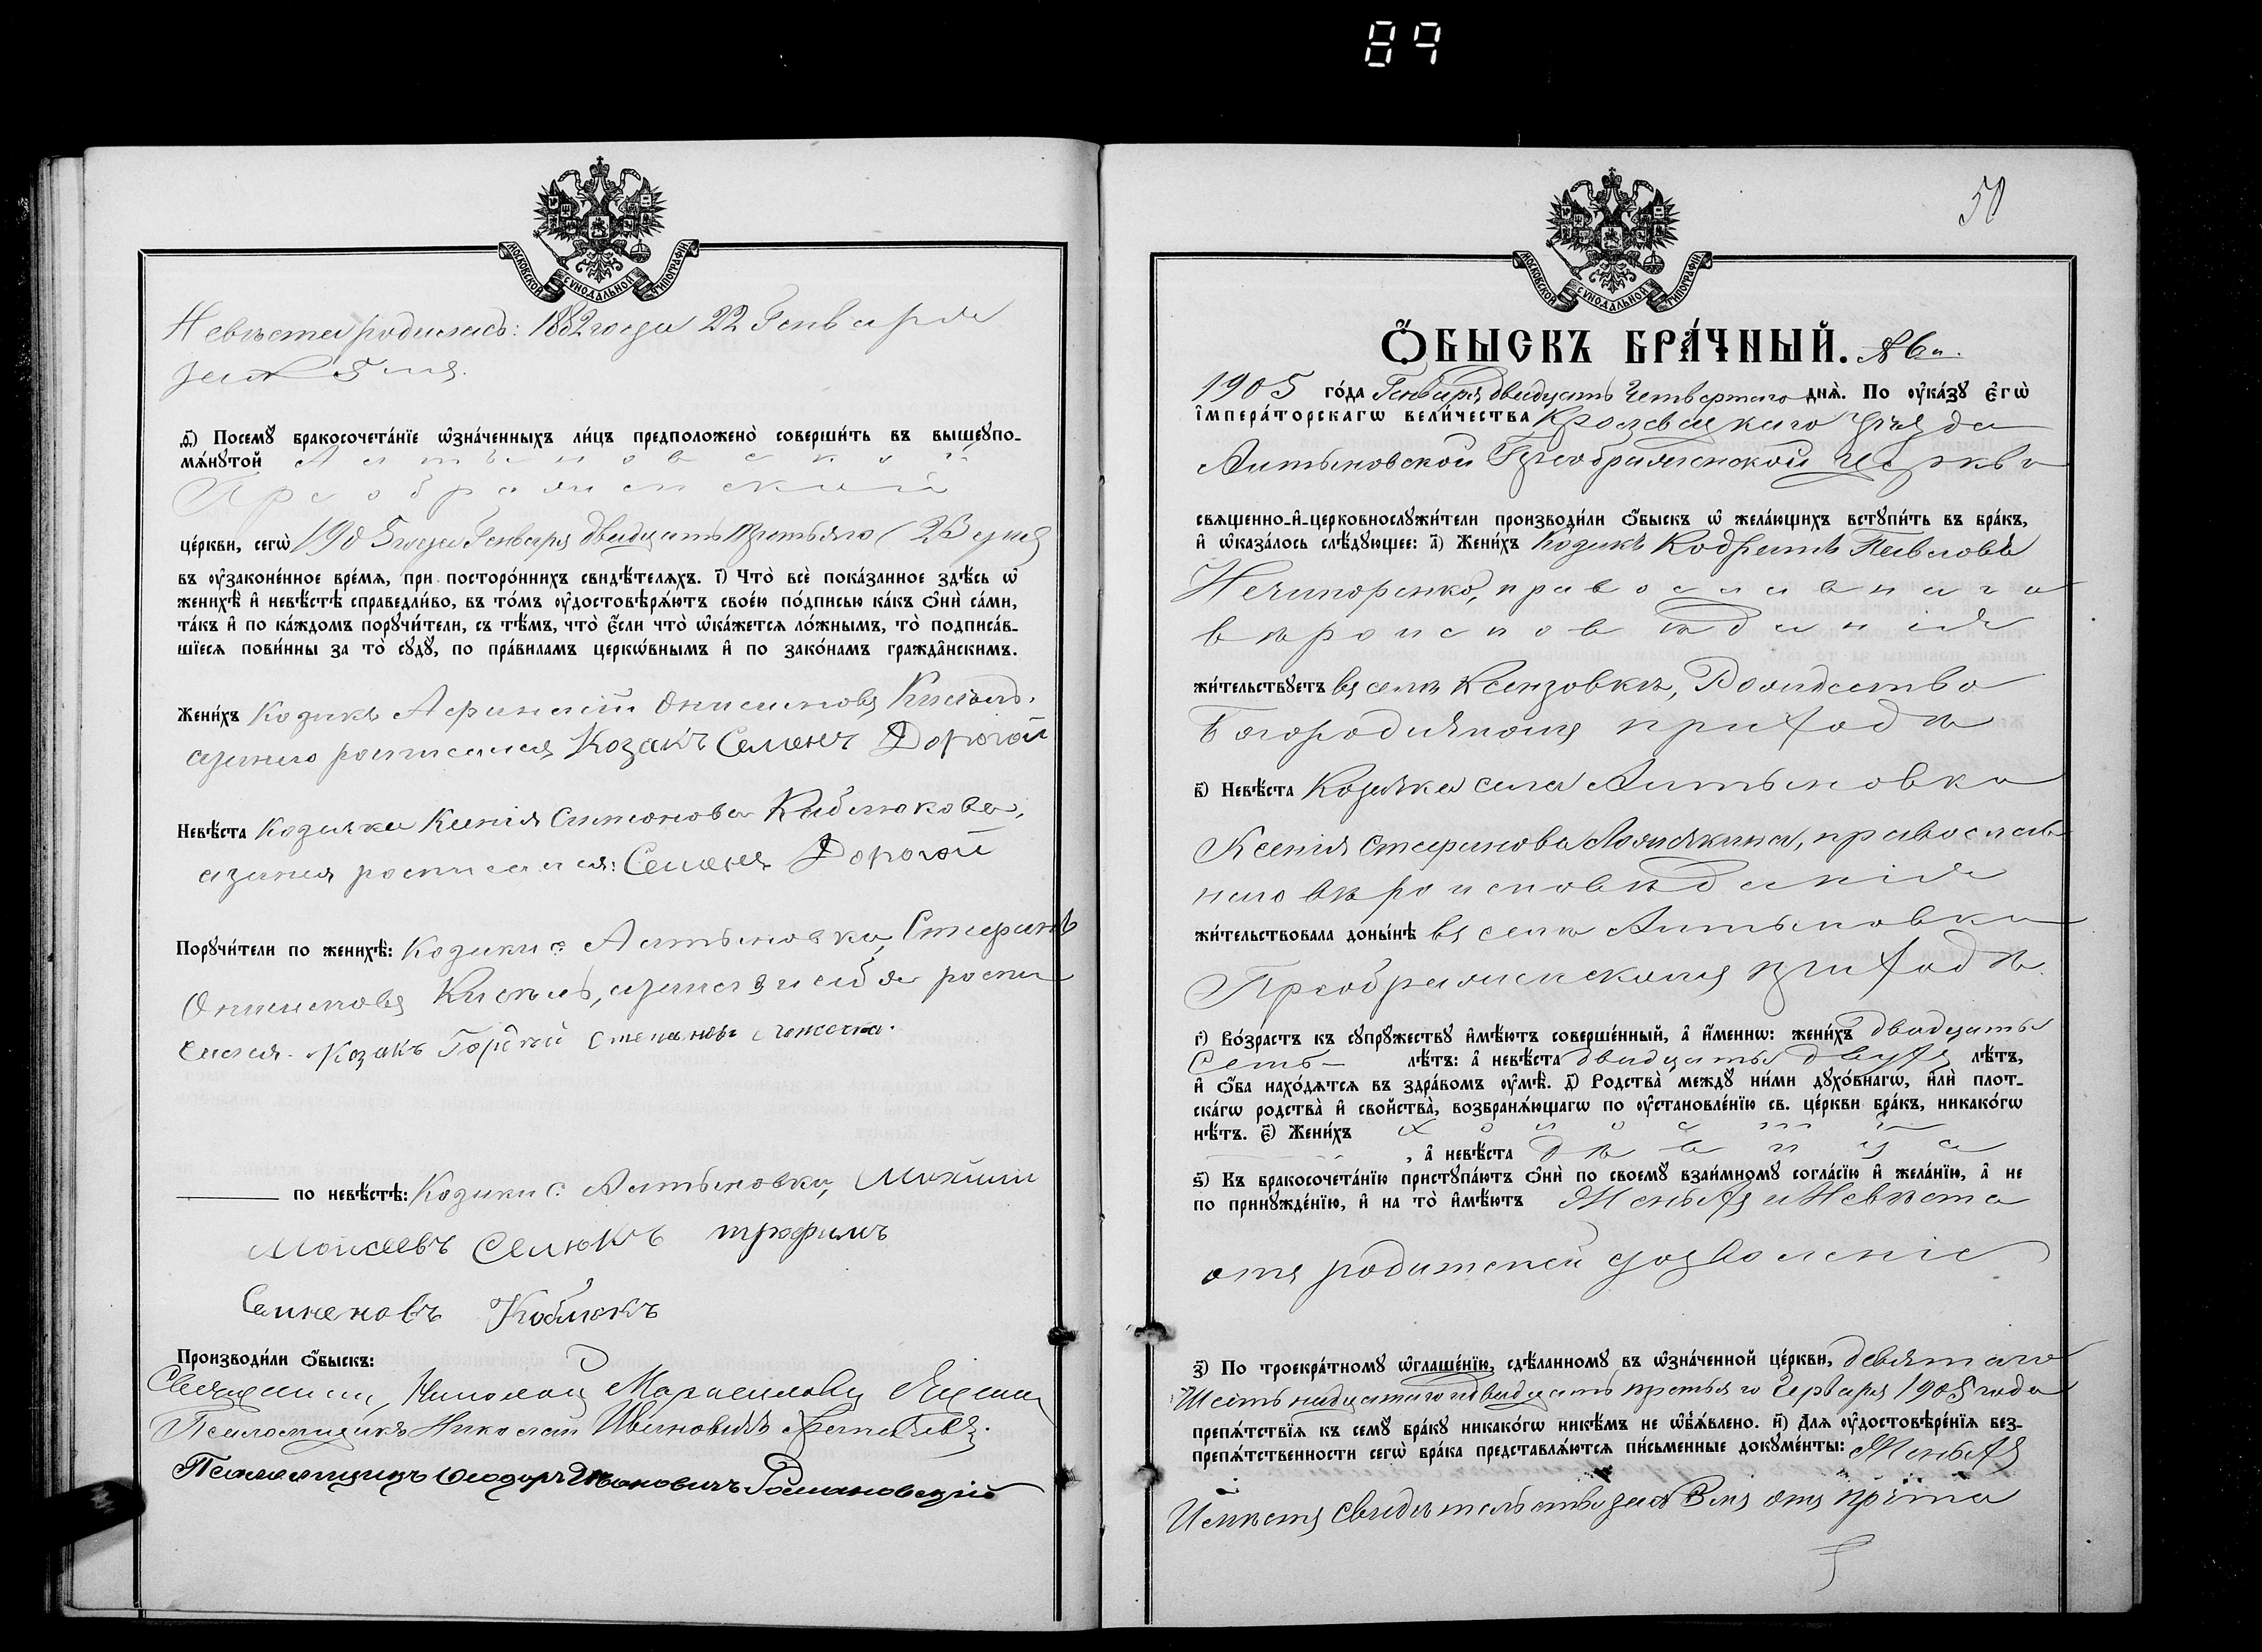 89
МОСКОВСКОЙ СѴНОДАЛЬНОЙ ТИПОГРАФІИ
Невѣста родилась: 1882 года 22 Генваря
за № 5 мъ.
д҃) Посемꙋ бракосочета́нїе ѡ҆зна́ченныхъ ли́цъ предположено̀ соверши́ть въ вышеꙋпо-
мѧ́нꙋтой Алтыновской
Преображенской
це́ркви, сегѡ̀ 1905 года Генваря двадцать третьяго (23 дня
въ ᲂу҆законе́нное вре́мѧ, при посторо́ннихъ свидѣ́телѧхъ. і҃) Что̀ всѐ пока́занное здѣ́сь ѡ҆
женихѣ̀ и҆ невѣ́стѣ справедли́во, въ то́мъ ᲂу҆достовѣрѧ́ютъ свое́ю по́дписью ка́къ ѻ҆нѝ са́ми,
та́къ и҆ по ка́ждомъ порꙋчи́тели, съ тѣ́мъ, что̀ є҆́сли что̀ ѡ҆ка́жетсѧ ло́жнымъ, то̀ подписа́в-
шїесѧ пови́нны за то̀ сꙋдꙋ̀, по пра́виламъ церкѡ́внымъ и҆ по зако́намъ гражда̑нскимъ.
Жени́хъ Козакъ Афанасій Онисимовъ Кисель,
а за него росписался Козакъ Семенъ Дорогой
Невѣ́ста Козачка Ксенія Симонова Каблюкова,
а за нея росписался: Семенъ Дорогой
Порꙋчи́тели по женихѣ̀: Козаки с. Алтыновки, Стефанъ
Онисимовъ Кисель, а за него и себя роспи
сался. Козакъ Степановъ
по невѣ́стѣ: Козаки с. Алтыновки, Михаилъ
Моисеевъ Селюкъ Трофимъ
Семеновъ Коблюкъ
Производи́ли ѻ҆́быскъ:
Священникъ Николай
Псаломщикъ Николай Ивановичъ
Псаломщикъ Ѳеодоръ Ивановичъ Романовскій
50
МОСКОВСКОЙ СѴНОДАЛЬНОЙ ТИПОГРАФІИ
Ѻ҆́БЫСКЪ БРА́ЧНЫЙ. № 6й.
1905 го́да Генваря двадцать четвертаго днѧ̀. По ᲂу҆ка́зꙋ є҆гѡ̀
і҆мпера́торскагѡ вели́чества Кролевецкаго уѣзда
Алтыновской Преображенской церкви
свѧщенно-и҆-церковнослꙋжи́тели производи́ли ѻ҆́быскъ ѡ҆ жела́ющихъ встꙋпи́ть въ бра́къ,
и҆ ѡ҆каза́лось слѣ́дꙋющее: а҃) Жени́хъ Козакъ Кодратъ Павловъ
Нечипоренко, православнаго
вѣроисповѣданія
жи́тельствꙋетъ въ селѣ Ксензовкѣ, Рождество
Богородичномъ приходѣ
в҃) Невѣ́ста Козачка села Алтыновки
Ксенія Стефанова православ
наго вѣроисповѣданія
жи́тельствовала доны́нѣ въ селѣ Алтыновки
Преображенскомъ приходѣ.
г҃) Во́зрастъ къ сꙋпрꙋ́жествꙋ и҆мѣ́ютъ соверше́нный, а҆ и҆́меннѡ: жени́хъ двадцать
семь лѣ́тъ: а҆ невѣ́ста двадцать двухъ лѣ́тъ,
и҆ ѻ҆́ба нахо́дѧтсѧ въ здра́вомъ ᲂу҆мѣ̀. д҃) Родства̀ междꙋ̀ ни́ми дꙋхо́внагѡ, и҆лѝ плот-
ска́гѡ родства̀ и҆ свойства̀, возбранѧ́ющагѡ по ᲂу҆становле́нїю св. це́ркви бра́къ, никако́гѡ
нѣ́тъ. є҃) Жени́хъ холостъ
, а҆ невѣ́ста дѣвица
ѕ҃) Къ бракосочета́нїю пристꙋпа́ютъ ѻ҆нѝ по своемꙋ̀ взаи́мномꙋ согла́сїю и҆ жела́нїю, а҆ не
по принꙋжде́нїю, и҆ на то̀ и҆мѣ́ютъ Женихъ и Невѣста
отъ родителей дозволеніе
з҃) По троекра́тномꙋ ѡ҆глаше́нїю, сдѣ́ланномꙋ въ ѡ҆зна́ченной це́ркви, девятаго
Шестьнадцатаго и двадцать третьяго Генваря 1905 года
препѧ́тствїѧ къ семꙋ̀ бра́кꙋ никако́гѡ никѣ́мъ не ѡ҆б̾ѧ́влено. и҃) Длѧ ᲂу҆достовѣре́нїѧ без-
препѧ́тственности сегѡ̀ бра́ка представлѧ́ютсѧ пи́сьменные докꙋме́нты: Женихъ
Имѣетъ свидѣтельство за № 3 мъ отъ причта